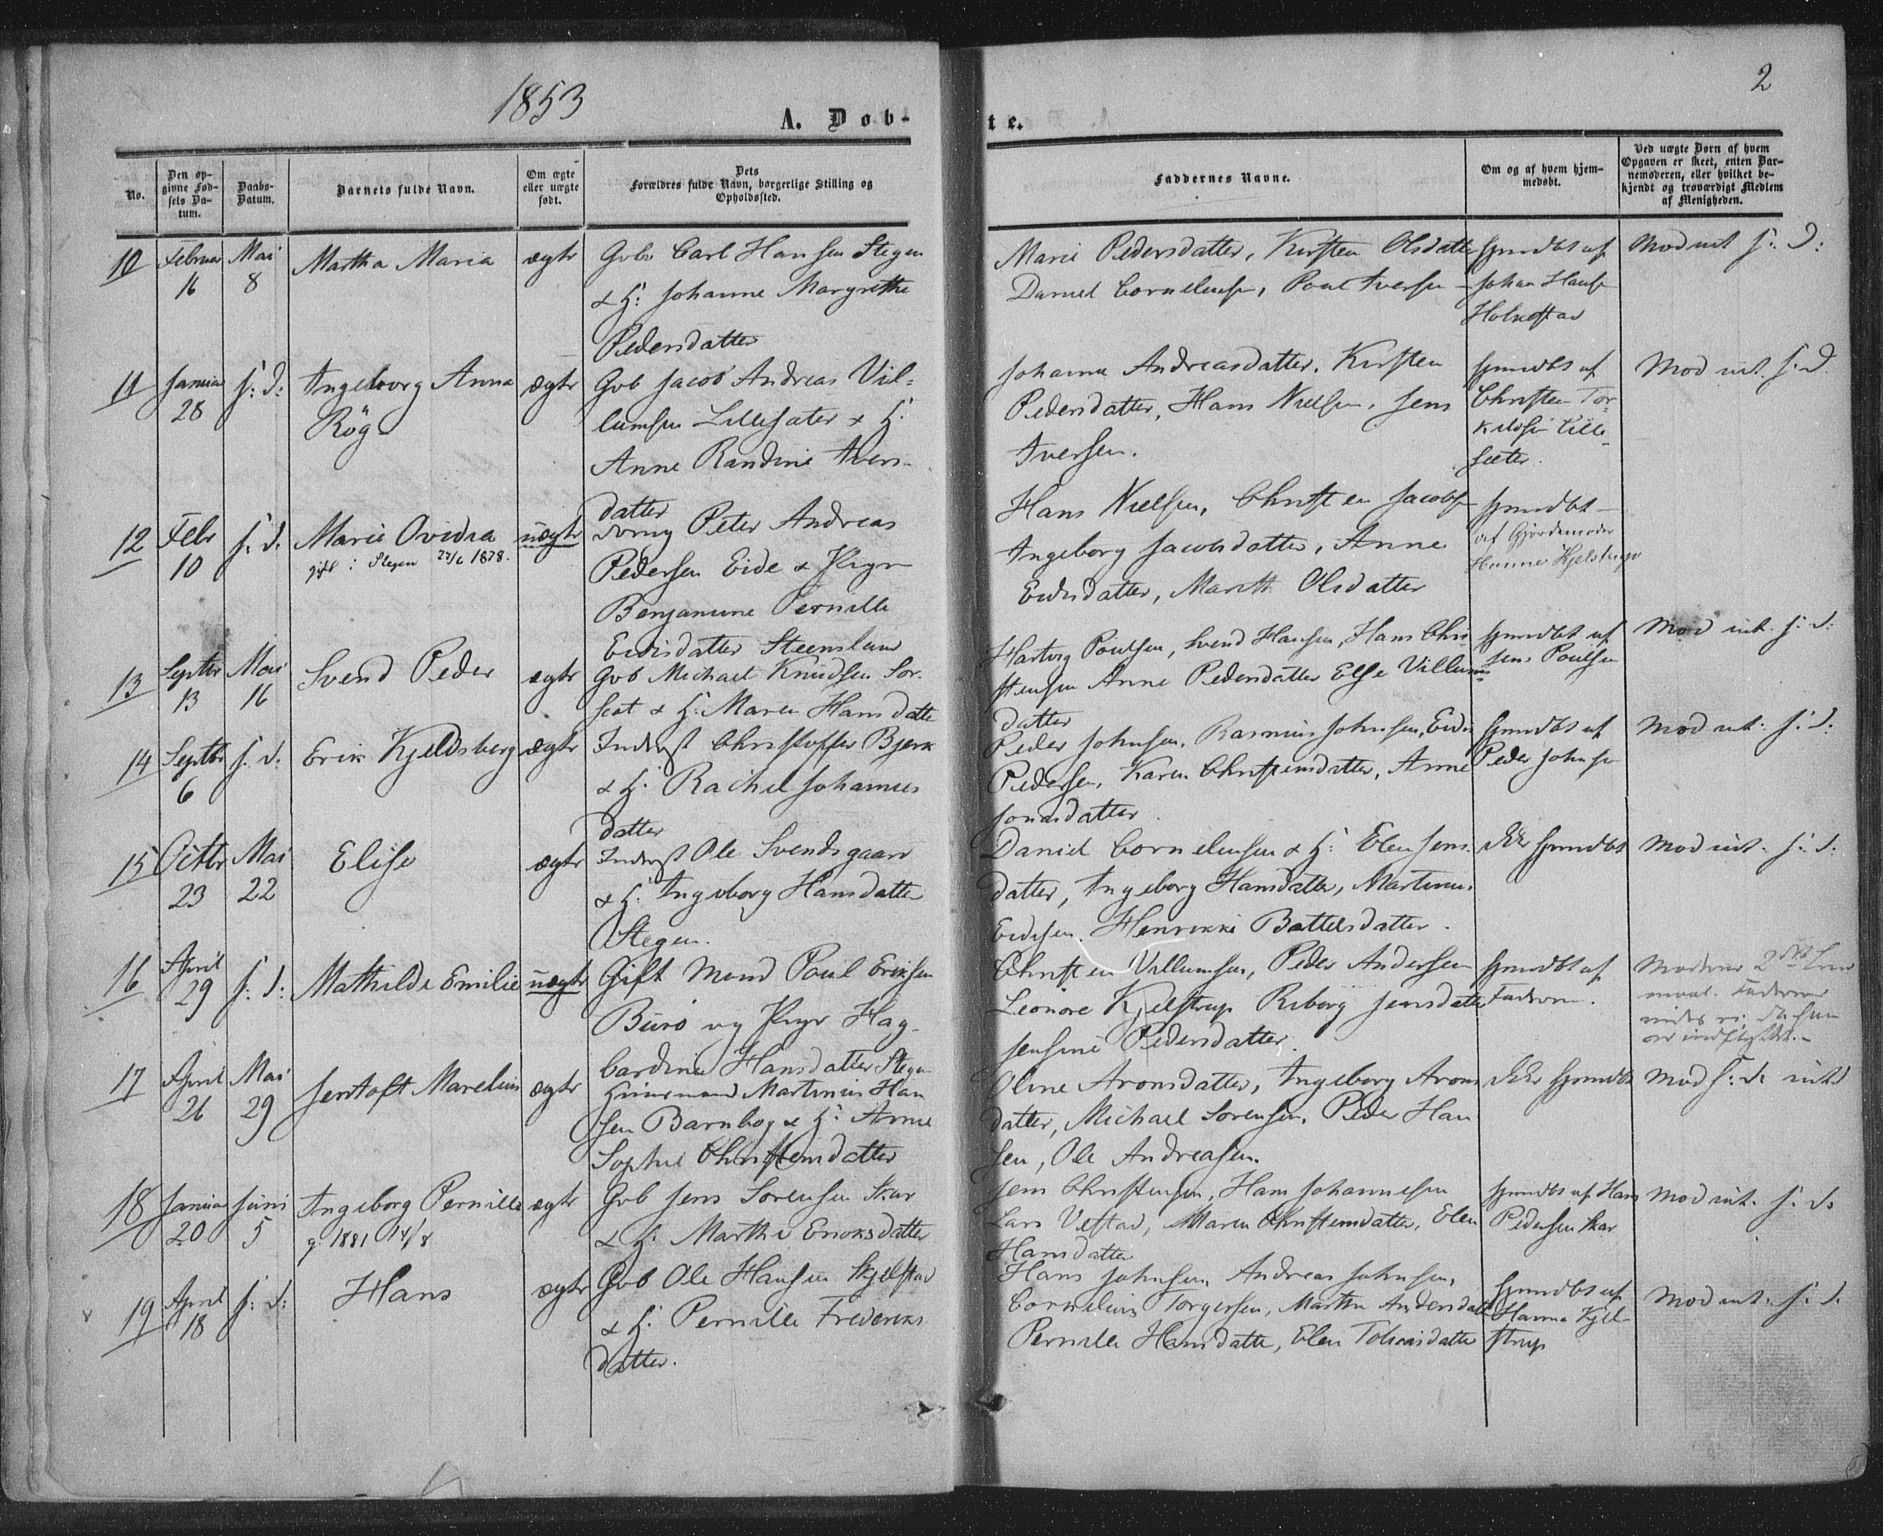 1853
2
A. Døb-
te.
No.
Den op-
givne Fød-
sels Da-
tum.
Daabs-
Datum.
Barnets fulde Navn.
Om ægte
eller uægte
født.
Dets
Forældres fulde Navn, borgerlige Stilling og
Opholdssted.
Faddernes Navne.
Om og af hvem hjem-
medøbt.
Ved uægte Børn af hvem
Opgaven er skeet, enten Bar-
nemoderen, eller hvilket be-
kjendt og troværdigt Medlem
af Menigheden.
10 Februar Mai Martha Maria ægte Gvb Carl Hansen Stegen
16 8 & H: Johanne Margrethe
Pedersdatter
Marie Pedersdatter, Kirsten Olsdatter
Daniel Cornelius, Poul Iversen
hjmdbt af
Johan Hans
Holkestad
Mod int. s: d:
11 Januar s: d: Ingeborg Anna ægte Gvb Jacob Andreas Vil-
28 Røg lumsen Lillesæter & H:
Anne Randine Ivers-
datter
Johanna Andreasdatter, Kirsten
Pedersdatter, Hans Nielsen, Jens
Iversen.
hjmdbt af
Christen Tor-
kildsen Lille-
sæter.
Mod int. s: d
12 Febr s: d: Marie Ovidia uægte Peter Andreas
10 gift i Stegen 27/6 1878. Pedersen Eide & Pige
Benjamine Pernille
Eidisdatter Steenslan
Hans Nielsen, Christen Jacobs
Ingeborg Jacobsdatter, Anne
Eidisdatter, Marith Olsdatter
hjmdbt
af Gjordemoder
Hanne Kjelstrup
13 Septbr Mai Svend Peder ægte Gvb Michael Knudsen Sor-
13 16 & H: Maren Hansdatter
Hartvig Poulsen, Svend Hansen, Hans Chri
stensen Anne Pedersdatter Else Villums
datter
hjmdbt af
Jens Poulsen
Mod int. s: d:
14 Septbr s: d: Erik Kjeldsberg ægte Inderst Christoffer Bjerk
6 & H: Rachel Johannes
datter
Peder Johnsen, Rasmus Johnsen, Eidis
Pedersen, Karen Christensdatter, Anne
Jonasdatter.
hjmdbt af
Peder Johnsen
Mod int. s: d:
15 Octbr Mai Elise ægte Inderst Ole Svendsgaard
23 22 & H: Ingeborg Hansdatter
Stegen.
Daniel Cornelius & H: Elen Jens-
datter, Ingeborg Hansdatter, Martinus
Eidisen. Henrikke Battelsdatter.
Ikke hjmdbt
Mod int. s: d:
16 April s: d: Mathilde Emilie uægte Gift Mand Poul Eriksen
29 Burø og Pige Hag-
bardine Hansdatter Stegen
Christen Villumsen, Peder Andersen
Leonore Kjelstrup Riborg Jensdatter
Jensine Pedersdatter.
hjmdbt af
Faderen.
Moderens 2det
Faderens
17 April Mai Jentoft Marelius ægte Huusmand Martinus Han
26 29 sen Barnbog & H: Anne
Sophie Christensdatter
Oline Aronsdatter, Ingeborg Arons
datter, Michael Sørensen, Peder Han
sen, Ole Andreasen.
Ikke hjmdbt
Mod s: d: int
18 Januar Juni Ingeborg Pernille ægte Gvb Jens Sørensen Skar
20 5 g 1881 14/8 & H: Marthe Eriksdatter
Jens Christensen, Hans Johannesen
Lars Vestad, Maren Christensdatter, Elen
Hansdatter
hjmdbt af Hans
Pedersen Skar
Mod int. s: d:
19 April s: d: Hans ægte Gvb Ole Hansen Skjelstad
18 & H: Pernille Frederiks
datter.
Hans Johnsen, Andreas Johnsen,
Cornelius Torgersen, Martha Andersdatt
Pernille Hansdatter, Elen Tobiasdatter
hjmdbt af
Hanna Kjel-
strup
Mod int. s: d.